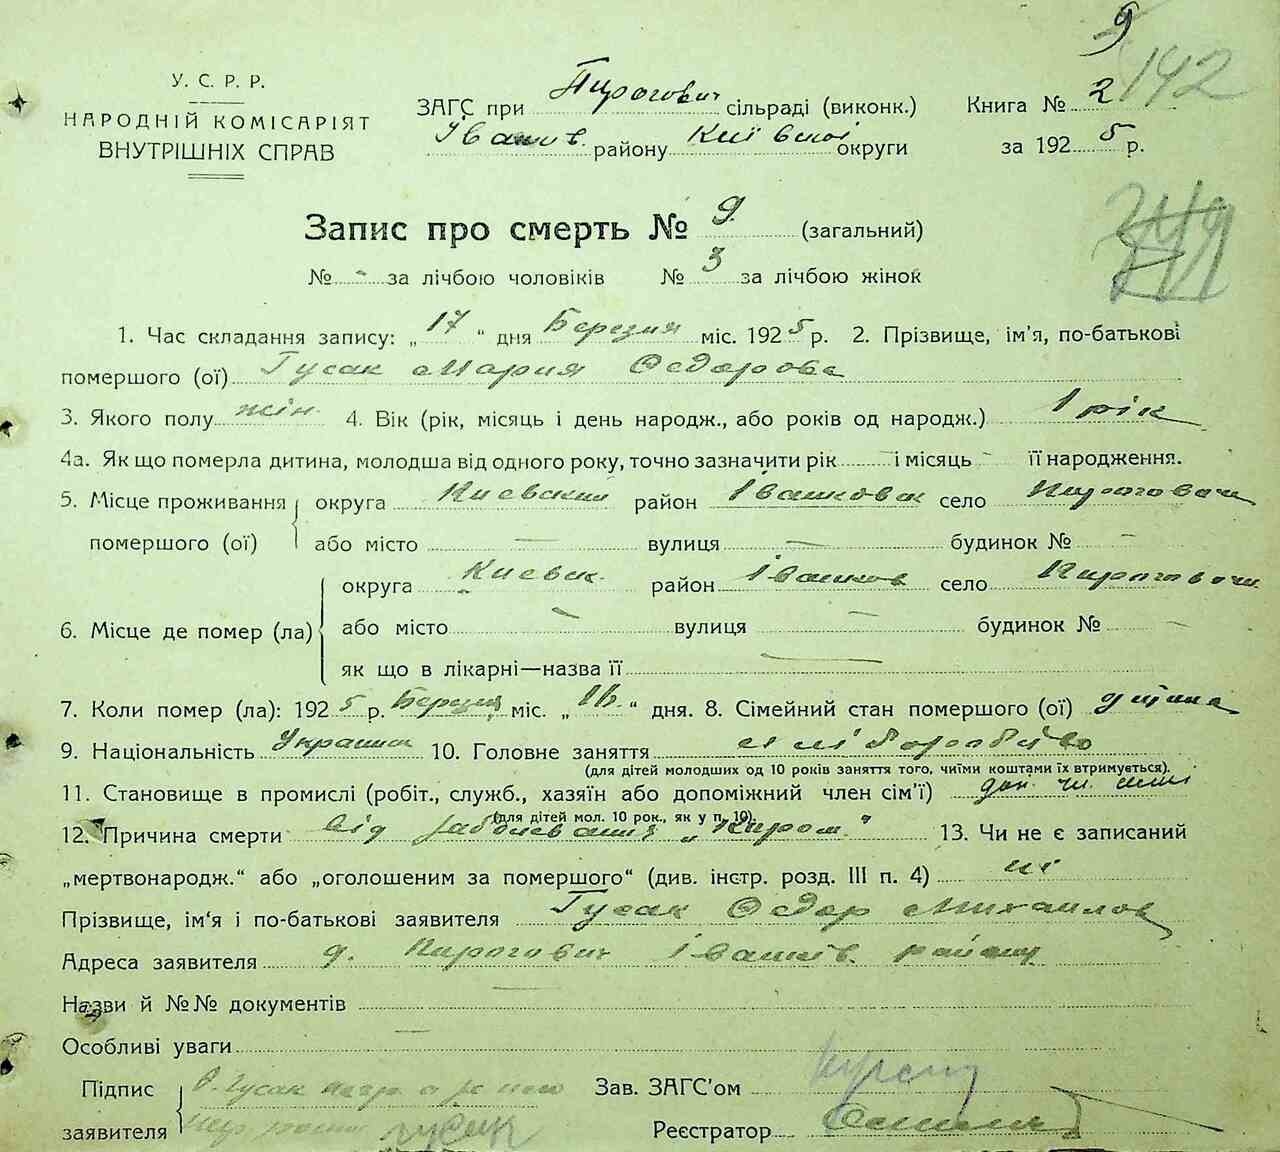 9
142
У. С. Р. Р.
НАРОДНІЙ КОМІСАРІЯТ
ВНУТРІШНІХ СПРАВ
ЗАГС при Пирогович сільраді (виконк.)
Іванків. району Київської округи
Книга № 2
за 1925 р.
Запис про смерть № 9 (загальний)
№ - за лічбою чоловіків № 3 за лічбою жінок
1. Час складання запису: „17“ дня Березня міс. 1925 р. 2. Прізвище, ім'я, по-батькові
помершого (ої) Гусак Мария Федорова
3. Якого полу жін. 4. Вік (рік, місяць і день народж., або років од народж.) 1 рік
4а. Як що померла дитина, молодша від одного року, точно зазначити рік - і місяць - її народження.
5. Місце проживання округа Киевский район Іванковск село Пироговичи
помершого (ої) або місто — вулиця — будинок № —
округа Киевск. район Іванков село Пироговичи
6. Місце де помер (ла) або місто — вулиця — будинок № —
як що в лікарні—назва її —
7. Коли помер (ла): 1925 р. Березня міс. „16“ дня. 8. Сімейний стан помершого (ої) дитина
9. Національність Українк 10. Головне заняття хліборобство
(для дітей молодших од 10 років заняття того, чиїми коштами їх втримується).
11. Становище в промислі (робіт., служб., хазяїн або допоміжний член сім'ї) доп. чл. сім'ї
(для дітей мол. 10 рок., як у п. 10).
12. Причина смерти від 13. Чи не є записаний
„мертвонародж.“ або „оголошеним за помершого“ (див. інстр. розд. III п. 4) ні
Прізвище, ім'я і по-батькові заявителя Гусак Федор Михайлов
Адреса заявителя д. Пирогович Іванків. району
Назви й №№ документів
Особливі уваги —
Підпис Гусак Зав. ЗАГС'ом
заявителя Гусак Реєстратор